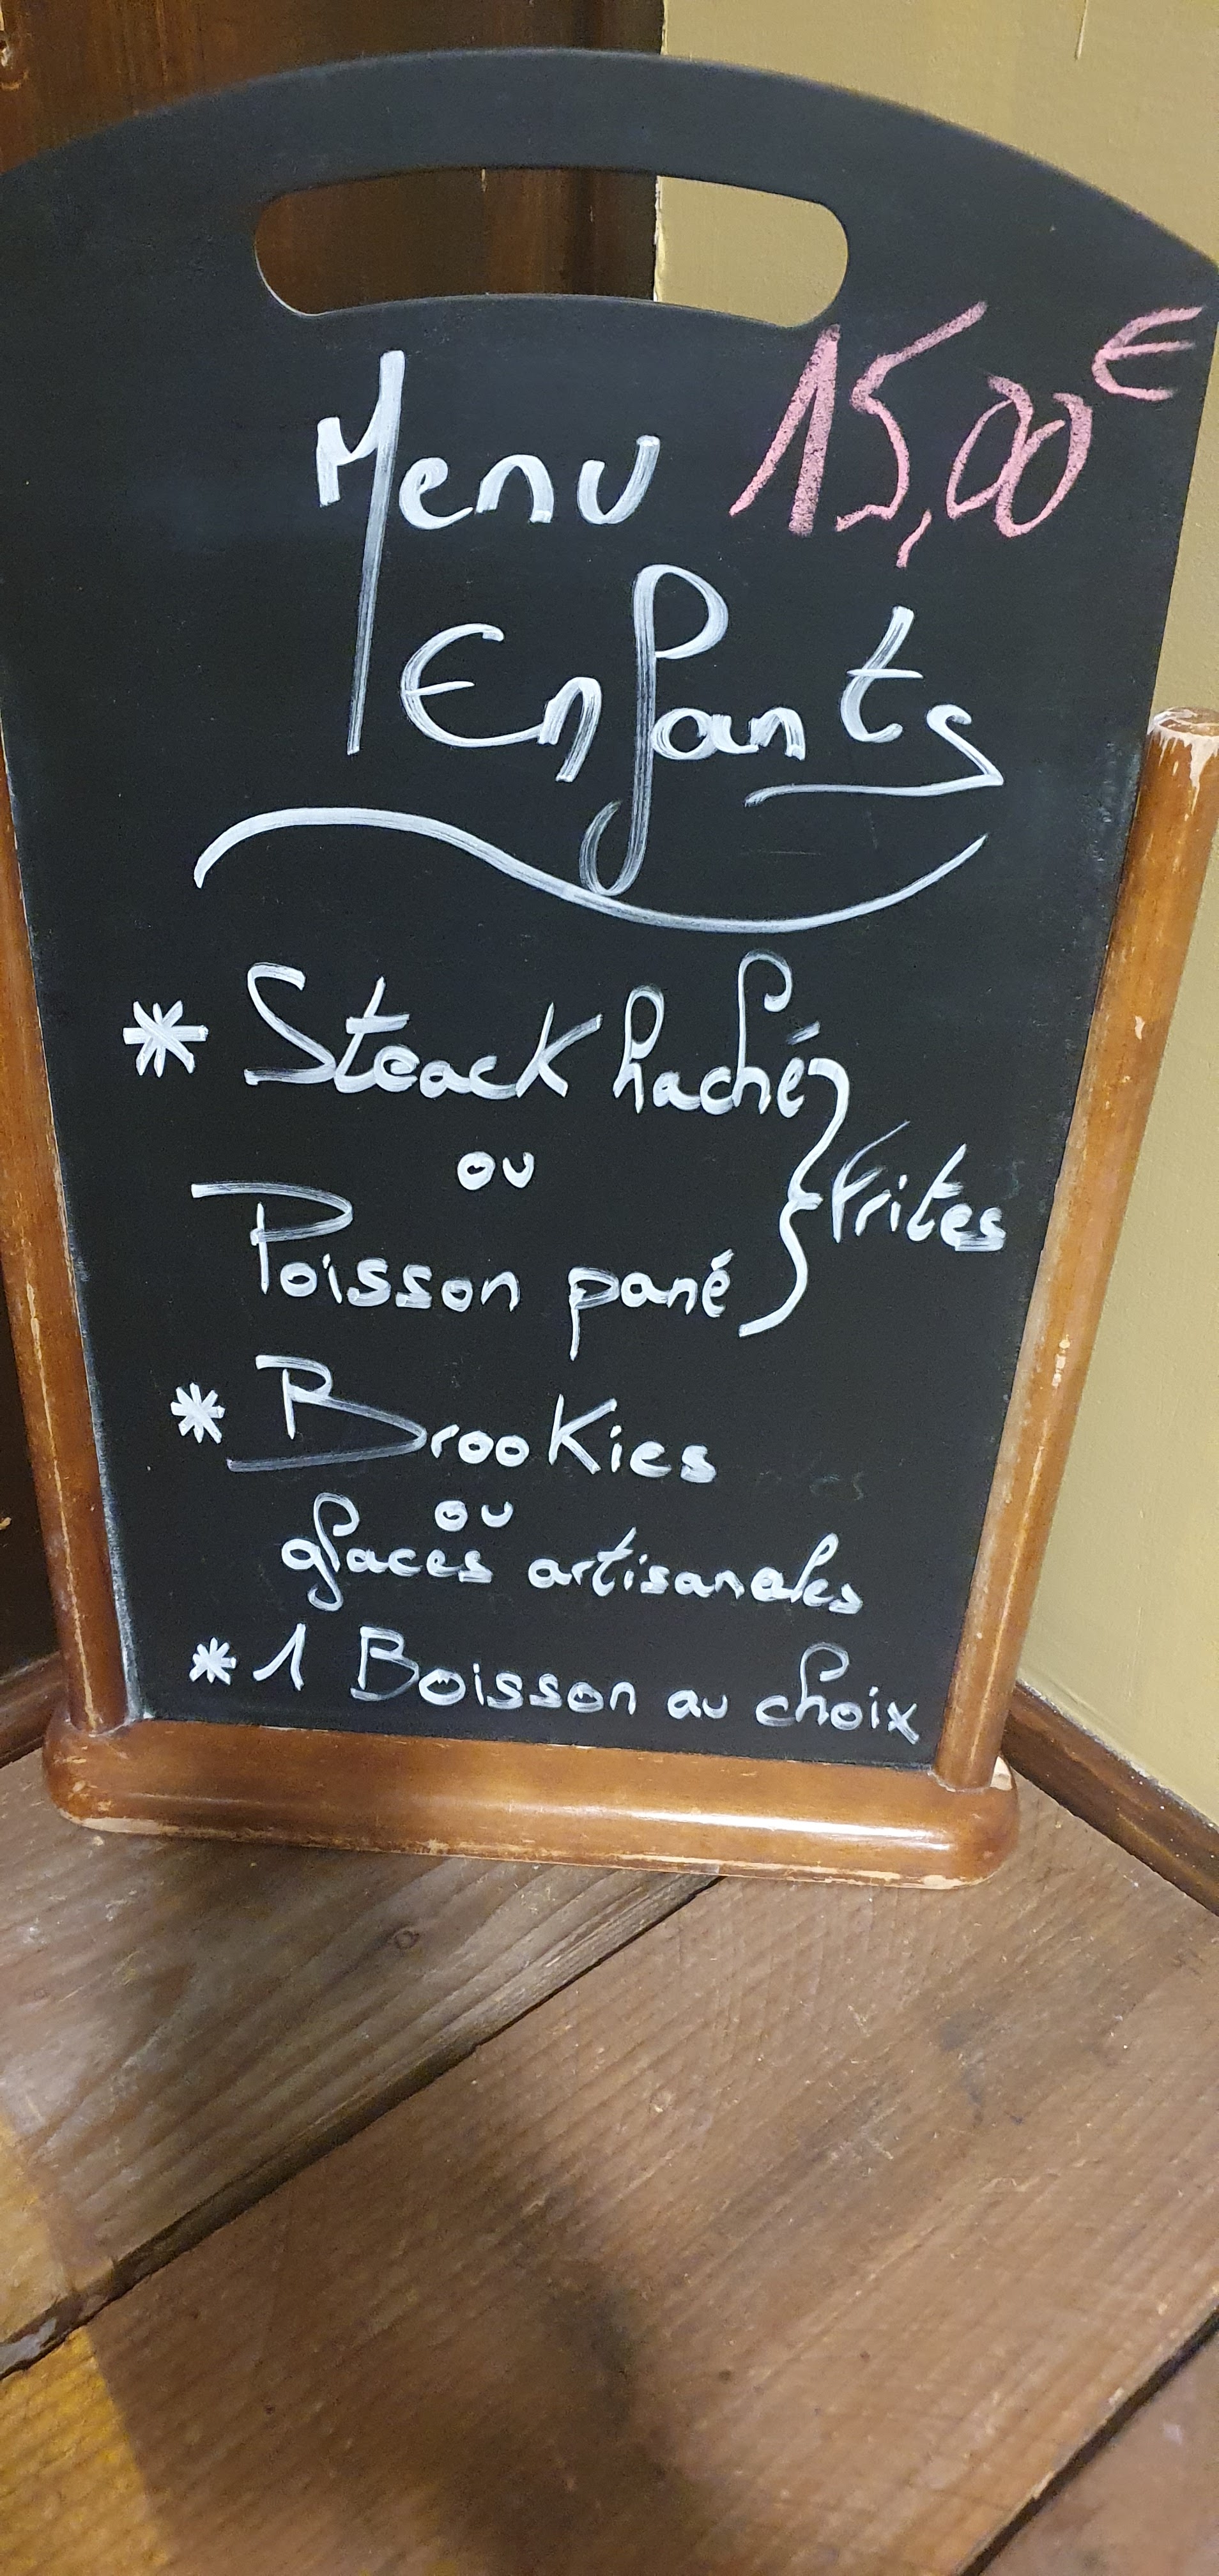 Menu 15,00€
Enfants
* Steack haché
ou
} Frites
Poisson pané
* Brookies
ou
glaces artisanales
* 1 Boisson au choix